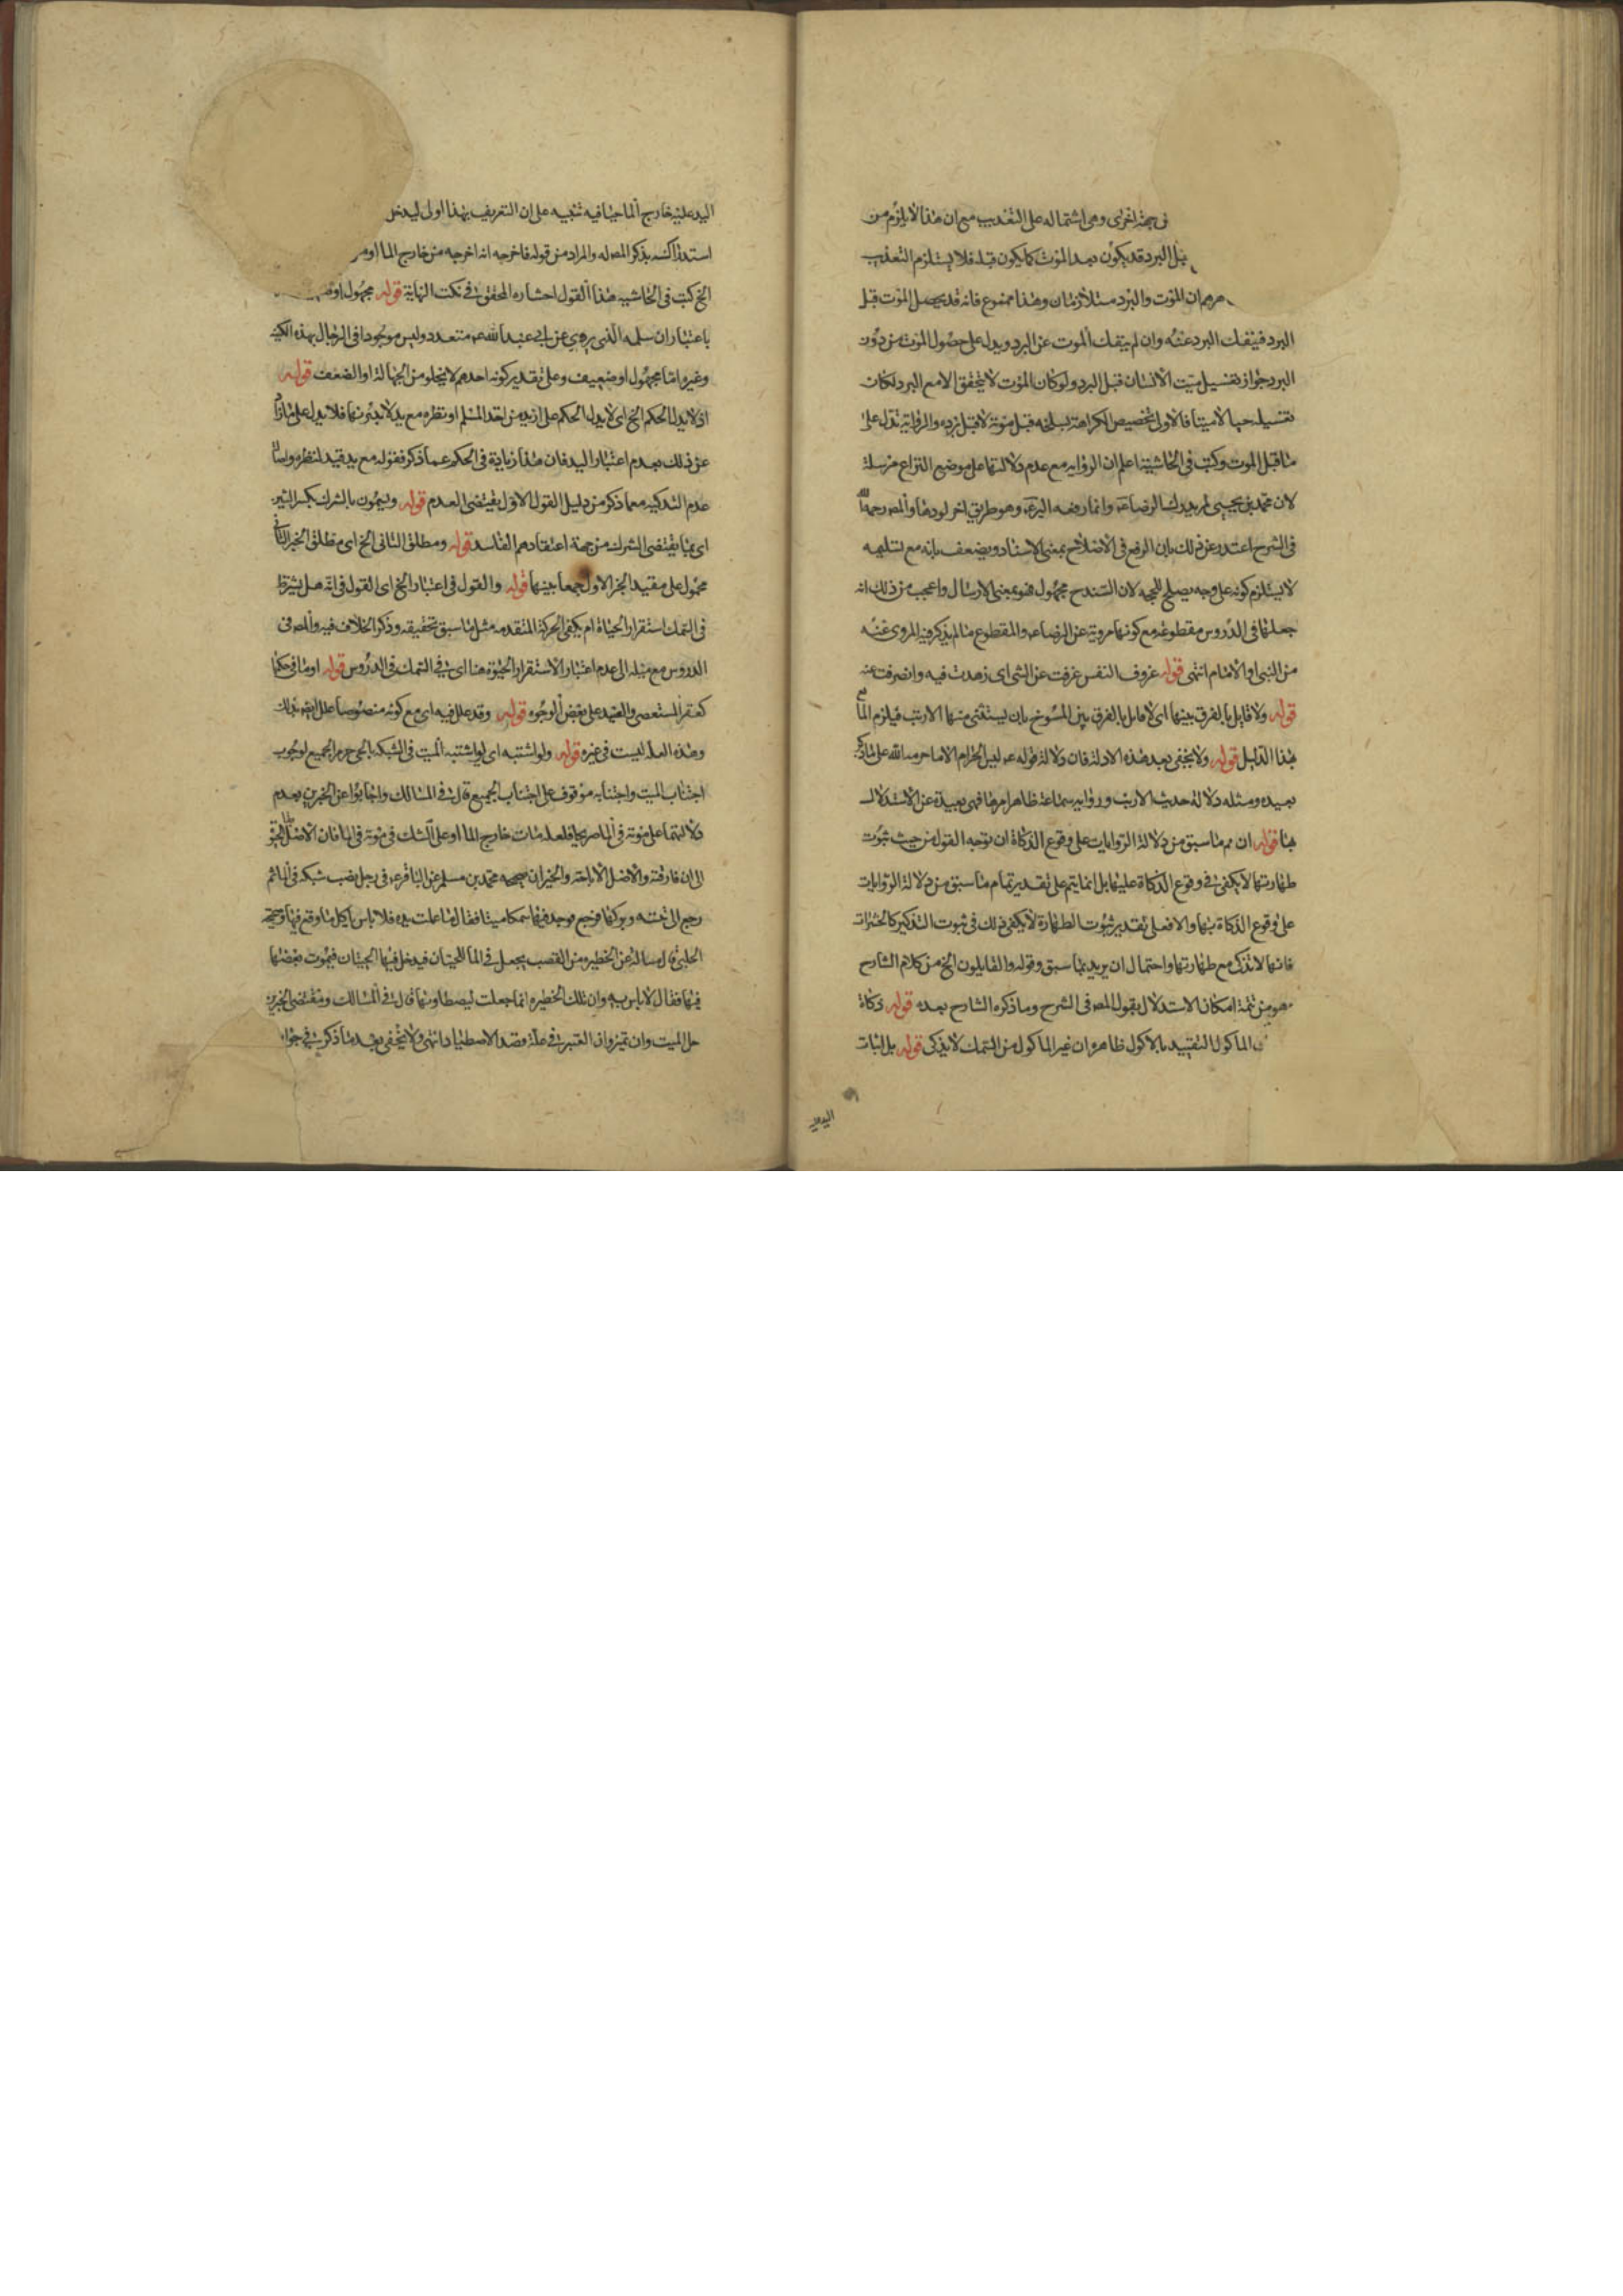 فى جهة اخرى وهى اشتماله على التعذيب مع ان هذا لا يلزم من
قبل البرد قد يكون بعد الموت كما يكون قبله فلا يستلزم التعذيب
ان الموت والبرد متلازمان وهذا ممنوع فانه قد يحصل الموت قبل
البرد فينفك البرد عنه وان لم ينفك الموت عن البرد ويدل على حصول الموت من دون
البرد جواز تغسيل ميت الانسان قبل البرد ولو كان الموت لا يتحقق الا مع البرد لكان
تغسيله حيا لا ميتا فالاولى تخصيص الكراهة بسلخه قبل موته لا قبل برده والرواية تدل على
ما قبل الموت وكتب فى الحاشية اعلم ان الرواية مع عدم دلالتها على موضع النزاع مرسلة
لان محمد بن يحيى لم يدرك الرضا ع وانما رفعه اليه ع وهو طريق اخر لردها والمصه رحمه الله
فى الشرح اعتذر عن ذلك بان الرفع فى الاصطلاح بمعنى الاسناد ويضعف بانه مع تسليمه
لا يستلزم كونه على وجه يصلح للحجه لان السند ح مجهول فهو بمعنى الارسال واعجب من ذلك انه
جعلها فى الدروس مقطوعه مع كونها مروية عن الرضا ع والمقطوع ما لم يذكر فيه المروى عنه
من النبى او الامام انتهى قوله عزوف النفس عزفت عن الشى اى زهدت فيه وانصرفت عنه
قوله ولا قايل بالفرق بينهما اى لا قايل بالفرق بين المسوخ بان يستثنى منها الارنب فيلزم
هذا الدليل قوله ولا يخفى بعد هذه الادلة فان دلالة قوله ع ليس الحرام الا ما حرمه الله على ما ذكر
بعيده ومثله دلالة حديث الارنب ورواية سماعة ظاهرا مرها فهى بعيدة عن الاستدلال
بها قوله ان تم ما سبق من دلالة الروايات على وقوع الذكاة ان توجه القول من حيث ثبوت
طهارتها لا يكفى فى وقوع الذكاة عليها بل انما يتم على تقدير تمام ما سبق من دلالة الروايات
على وقوع الذكاة بها والا فعلى تقدير ثبوت الطهارة لا يكفى ذلك فى ثبوت التذكير كالحشرات
فانها لا تذكى مع طهارتها واحتمال ان يريد بما سبق وقوله والقايلون الخ من كلام الشارح
هو من تتمة امكان الاستدلال بقول المصه فى الشرح وما ذكره الشارح بعده قوله ذكاة
الماكول التقييد بالاكول ظاهره ان غير الماكول من السمك لا يذكى قوله بل اثبات
اليد عليه خارج الما حيا فيه تنبيه على ان التعريف بهذا اولى ليدخل
استدراكه بذكر المصه له والمراد من قوله فاخرجه انه اخرجه من خارج الما
الخ كتب فى الحاشيه هذا القول اختاره المحقق فى نكت النهاية قوله مجهول او
باعتبار ان سلمه الذى يروى عن ابى عبد الله ع متعدد وليس موجودا فى الرجال بهذه الكنيه
وغيره اما مجهول او ضعيف وعلى تقدير كونه احدهم لا يخلو من الجهالة او الضعف قوله
اذ لا يدل الحكم الخ اى لا يدل الحكم على ازيد من اخذ المسلم او نظره مع يد لا بد منها فلا يدل على ما زاد
عن ذلك بعدم اعتبار اليد فان هذا زيادة فى الحكم عما ذكر فقوله مع يد قيد لنظره واما
عدم التذكيه معما ذكر من دليل القول الاول يقتضى العدم قوله ويسمون بالشرك بكسر الشين
اى بما يقتضى الشرك من جهة اعتقادهم الفاسد قوله ومطلق الثانى الخ اى مطلق الخبر الثانى
محمول على مقيد الخبر الاول جمعا بينهما قوله والقول فى اعتبار الخ اى القول فى انه هل يشترط
فى السمك استقرار الحياة ام يكفى الحركة المتقدمه مثل ما سبق تحقيقه وذكر الخلاف فيه والمصه فى
الدروس مع ميله الى عدم اعتبار الاستقرار الحيوة هنا اى فى السمك فى الدروس قوله او ما فى حكمها
كعقر المستعصى والصيد على بعض الوجوه قوله وقد علل فيه اى مع كونه منصوصا علل ايضه بذلك
وهذه العله ليست فى غيره قوله ولو اشتبه اى لو اشتبه الميت فى الشبكه بالحى حرم الجميع لوجوب
اجتناب الميت واجتنابه موقوف على اجتناب الجميع قال فى المسالك واجابوا عن الخبرين بعدم
دلالتهما على موته فى الما صريحا فلعله مات خارج الما او على الشك فى موته فى الما فان الاصل
الى ان فارقته والاصل الاباحة والخبران صحيحه محمد بن مسلم عن الباقر ع فى رجل نصب شبكه فى الما ثم
رجع الى بيته وتركها فرجع فوجد فيها سمكا ميتا فقال ما عملت يده فلا باس باكل ما وقع فيها وصحيحه
الحلبى قال سالته عن الحظيره من القصب يجعل فى الما للحيتان فيدخل فيها الحيتان فيموت بعضها
فيها فقال لا باس به وان تلك الحظيره انما جعلت ليصطاد منها قال فى المسالك ومقتضى الخبرين
حل الميت وان تميز وان المعتبر فى حله قصد الاصطياد انتهى ولا يخفى بعد ما ذكر فى